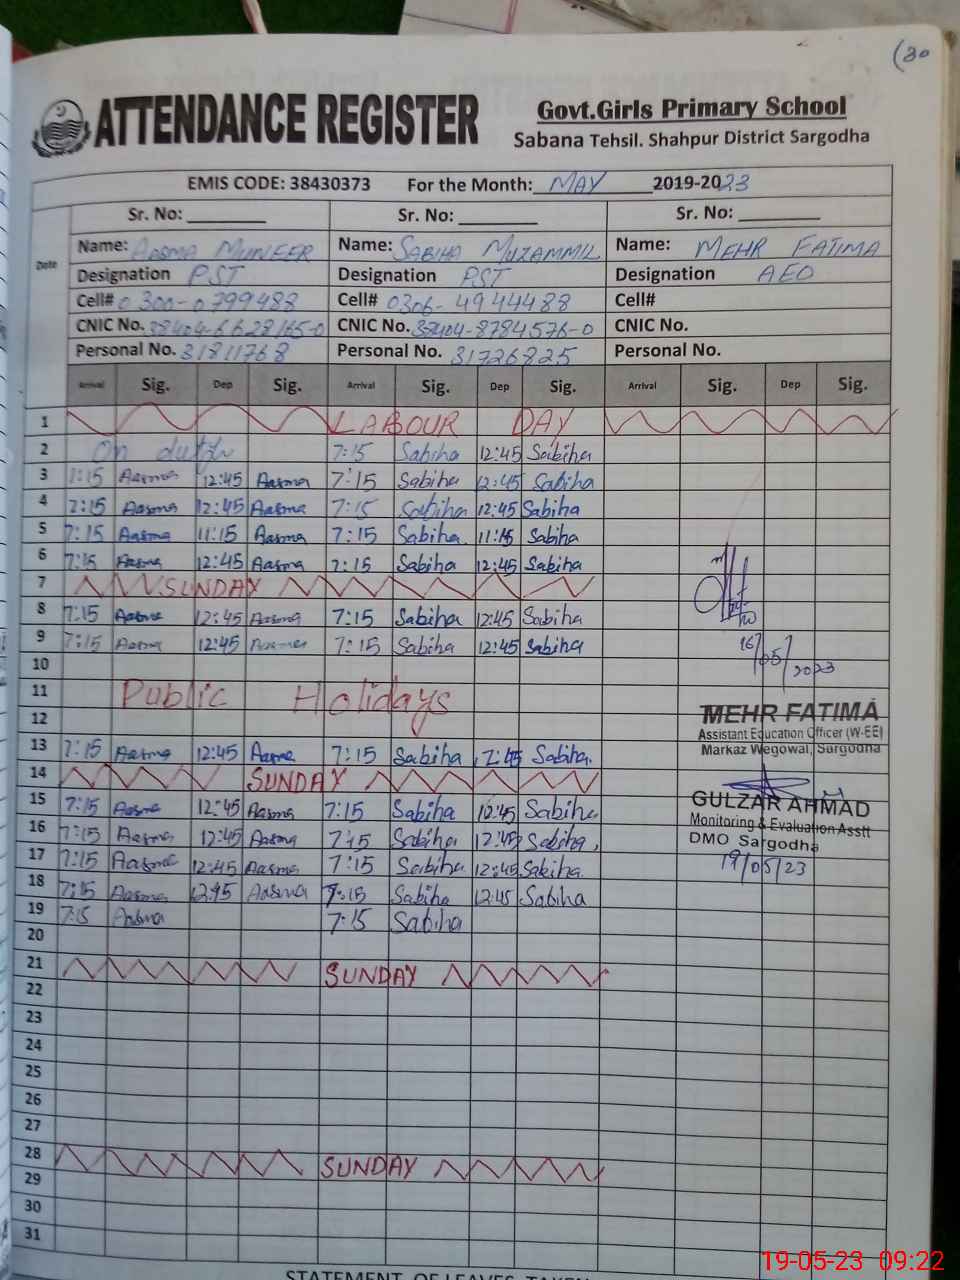 (30
ATTENDANCE REGISTER
Govt.Girls Primary School
Sabana Tehsil. Shahpur District Sargodha
EMIS CODE: 38430373 For the Month: MAY 2019-2023
Date Sr. No: Sr. No: Sr. No:
Name: AASMA MUNEER Name: SABIHA MUZAMMIL Name: MEHR FATIMA
Designation PST Designation PST Designation AEO
Cell# 0300-0799488 Cell# 0306-4944488 Cell#
CNIC No. 38404-6628165-0 CNIC No. 38404-8784576-0 CNIC No.
Personal No. 31811768 Personal No. 31726825 Personal No.
Arrival Sig. Dep Sig. Arrival Sig. Dep Sig. Arrival Sig. Dep Sig.
1 LABOUR DAY
2 On duty 7:15 Sabiha 12:45 Sabiha
3 7:15 Aasma 12:45 Aasma 7:15 Sabiha 12:45 Sabiha
4 7:15 Aasma 12:45 Aasma 7:15 Sabiha 12:45 Sabiha
5 7:15 Aasma 11:15 Aasma 7:15 Sabiha 11:15 Sabiha
6 7:15 Aasma 12:45 Aasma 7:15 Sabiha 12:45 Sabiha
7 SUNDAY
8 7:15 Aasma 12:45 Aasma 7:15 Sabiha 12:45 Sabiha
9 7:15 Aasma 12:45 Aasma 7:15 Sabiha 12:45 Sabiha
16/05/2023
10
11 Public Holidays
12
MEHR FATIMA
Assistant Education Officer (W-EE)
Markaz Wegowal, Sargodha
13 7:15 Aasma 12:45 Aasma 7:15 Sabiha 12:45 Sabiha
14 SUNDAY
15 7:15 Aasma 12:45 Aasma 7:15 Sabiha 12:45 Sabiha
GULZAR AHMAD
Monitoring & Evaluation Asstt
DMO Sargodha
19/05/23
16 7:15 Aasma 12:45 Aasma 7:15 Sabiha 12:45 Sabiha
17 7:15 Aasma 12:45 Aasma 7:15 Sabiha 12:45 Sabiha
18 7:15 Aasma 12:45 Aasma 7:15 Sabiha 12:45 Sabiha
19 7:15 Aasma 7:15 Sabiha
20
21 SUNDAY
22
23
24
25
26
27
28 SUNDAY
29
30
31
STATEMENT OF LEAVES TAKEN
19-05-23 09:22